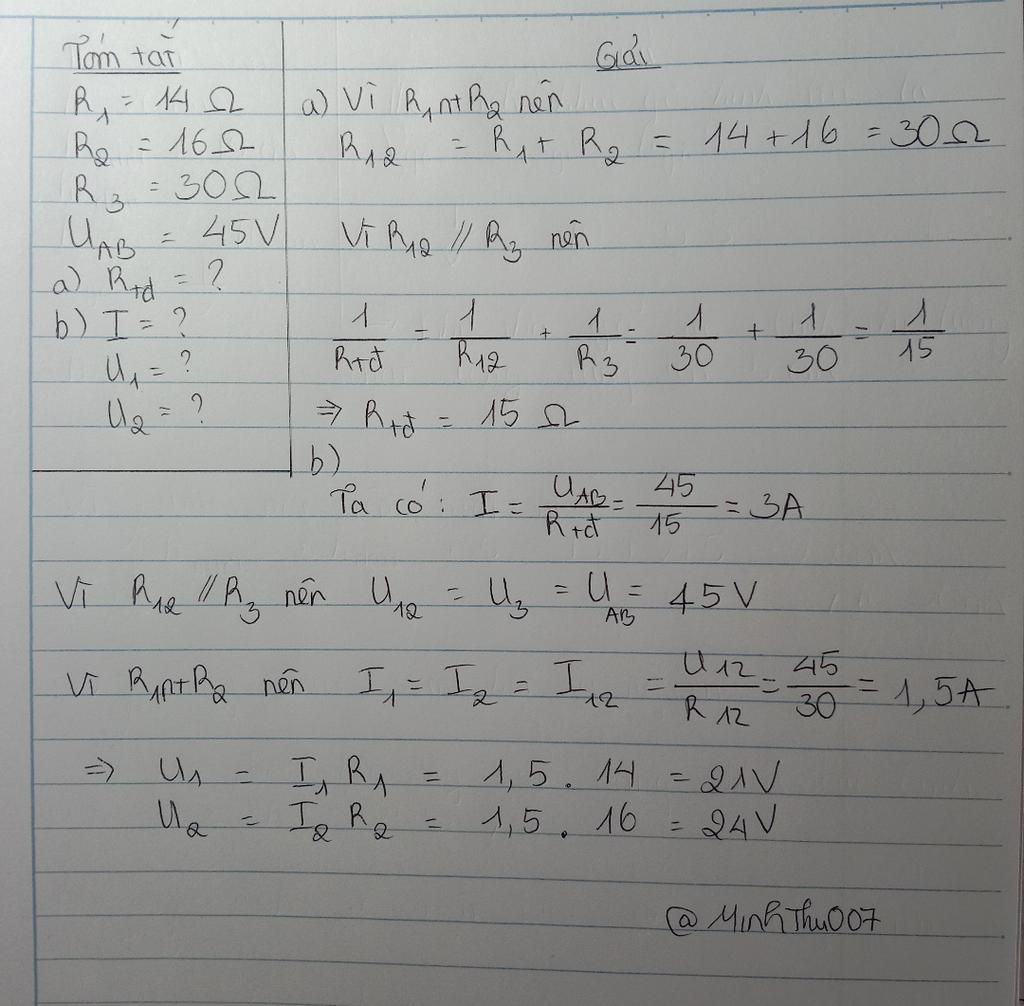 Tóm tắt
R₁ = 14 Ω
R₂ = 16 Ω
R₃ = 30 Ω
U_AB = 45 V
a) R_tđ = ?
b) I = ?
U₁ = ?
U₂ = ?
Giải
a) Vì R₁ nt R₂ nên
R₁₂ = R₁ + R₂ = 14 + 16 = 30 Ω
Vì R₁₂ // R₃ nên
1/R_tđ = 1/R₁₂ + 1/R₃ = 1/30 + 1/30 = 1/15
⇒ R_tđ = 15 Ω
b)
Ta có: I = U_AB/R_tđ = 45/15 = 3A
Vì R₁₂ // R₃ nên U₁₂ = U₃ = U_AB = 45 V
Vì R₁ nt R₂ nên I₁ = I₂ = I₁₂ = U₁₂/R₁₂ = 45/30 = 1,5A
⇒ U₁ = I₁ R₁ = 1,5 . 14 = 21V
U₂ = I₂ R₂ = 1,5 . 16 = 24V
@MinhThu007